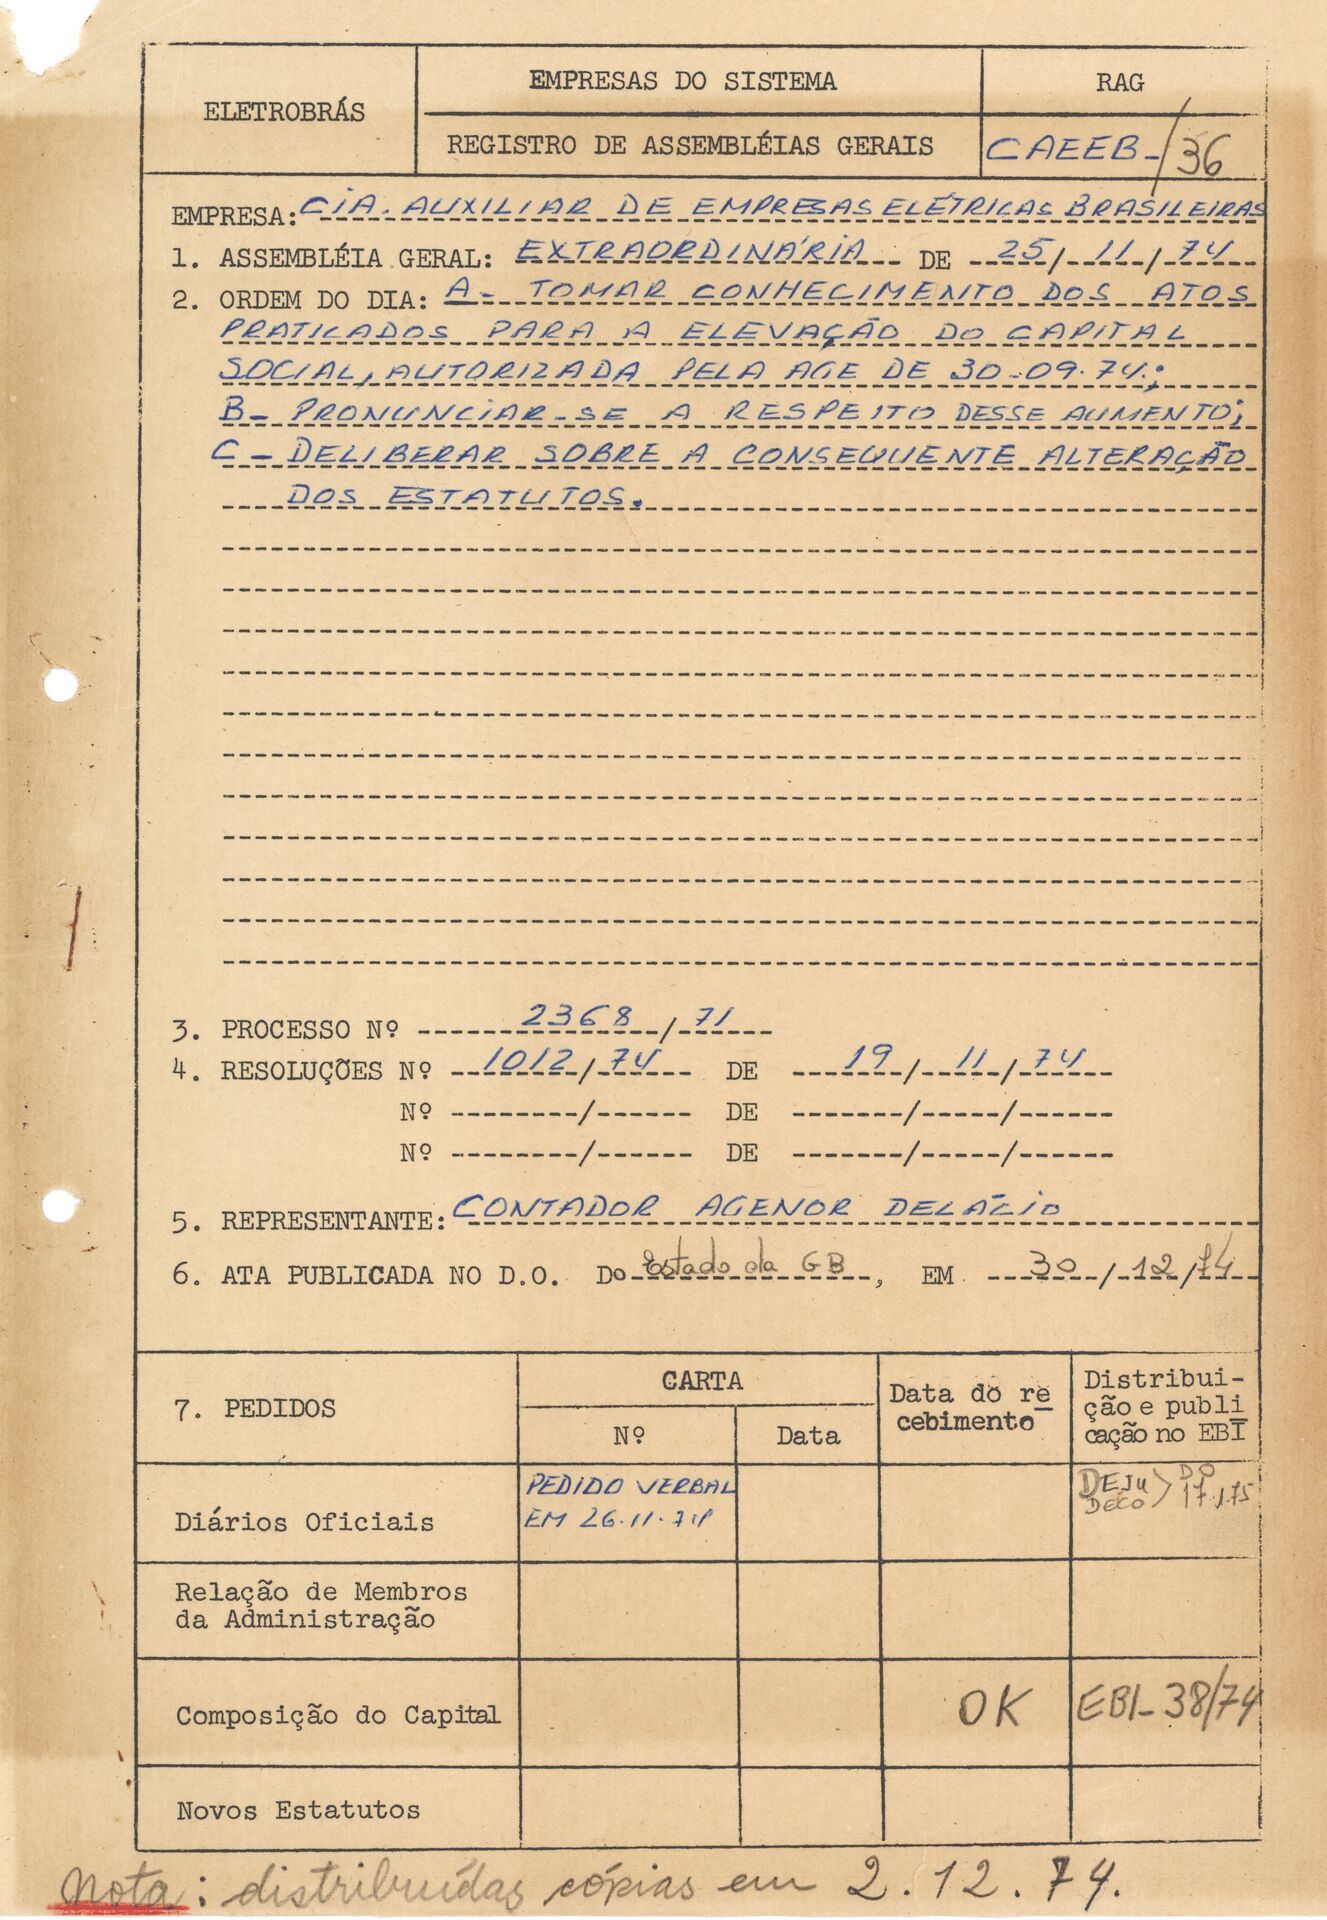 ELETROBRÁS
EMPRESAS DO SISTEMA
RAG
REGISTRO DE ASSEMBLÉIAS GERAIS
CAEEB-/36
EMPRESA: CIA. AUXILIAR DE EMPRESAS ELÉTRICAS BRASILEIRAS
1. ASSEMBLÉIA GERAL: EXTRAORDINÁRIA DE 25/11/74
2. ORDEM DO DIA: A- TOMAR CONHECIMENTO DOS ATOS
PRATICADOS PARA A ELEVAÇÃO DO CAPITAL
SOCIAL, AUTORIZADA PELA AGE DE 30-09-74;
B- PRONUNCIAR-SE A RESPEITO DESSE AUMENTO;
C- DELIBERAR SOBRE A CONSEQUENTE ALTERAÇÃO
DOS ESTATUTOS.
3. PROCESSO Nº 2368/71
4. RESOLUÇÕES Nº 1012/74 DE 19/11/74
Nº / DE / /
Nº / DE / /
5. REPRESENTANTE: CONTADOR AGENOR DELÁCIO
6. ATA PUBLICADA NO D.O. DO Estado da GB, EM 30/12/74
7. PEDIDOS
CARTA
Nº
Data
Data do re
cebimento
Distribui-
ção e publi
cação no EBI
Diários Oficiais
PEDIDO VERBAL
EM 26.11.74
DEJU
DECO > DO
17.1.75
Relação de Membros
da Administração
Composição do Capital
OK
EBI-38/74
Novos Estatutos
Nota: distribuídas cópias em 2.12.74.